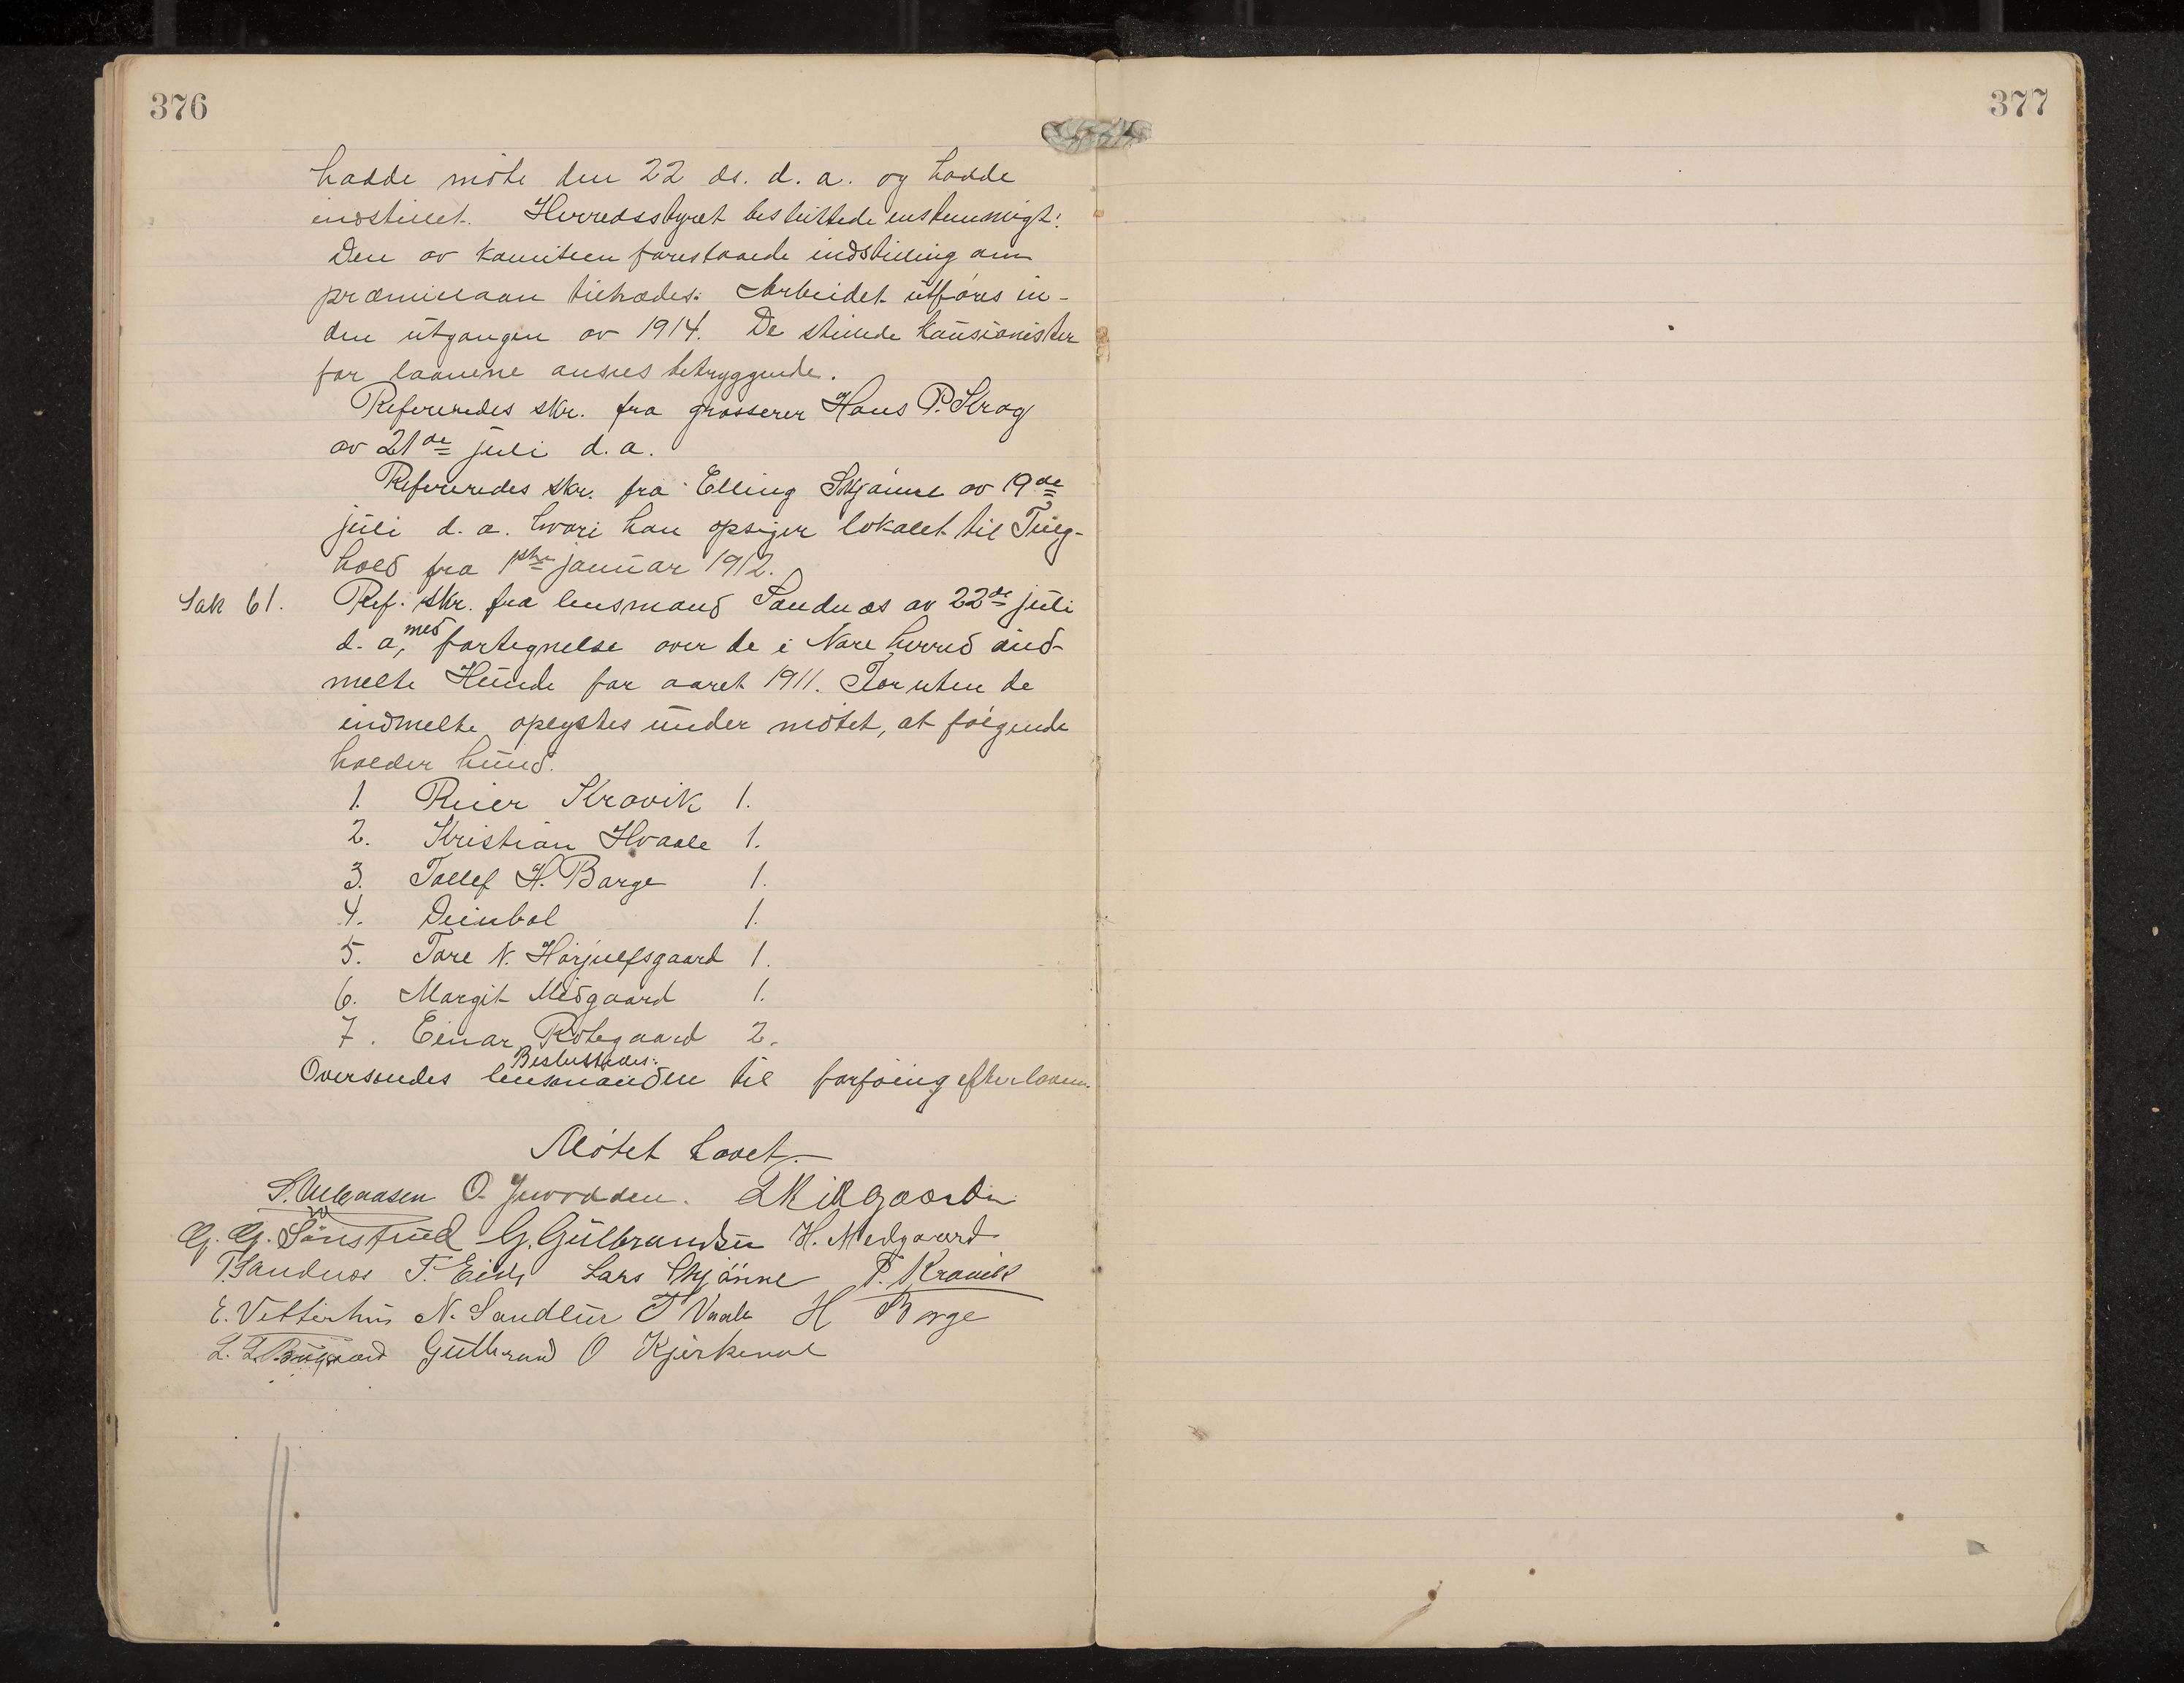 376
377
hadde möte den 22 ds. d. a. og hadde
indstillet. Herredsstyret besluttede enstemmigt:
Den av komiteen forestaaede indstilling om
præmielaan tiltrædes. Arbeidet utföres in-
den utgangen av 1914. De stillede kausionister
for laanene ansees betryggende.
Refereredes skr. fra grosserer Hans P. Krag
av 21de juli d. a.
Refereredes skr. fra Elling Skjönne av 19de
juli d. a. hvori han opsiger lokalet til Ting-
hold fra 1ste januar 1912.
Sak 61. Ref. skr. fra lensmand Sandnæs av 22de juli
d. a., med fortegnelse over de i Nore herred ind-
melte Hunde for aaret 1911. Foruten de
indmelte oplystes under mötet, at fölgende
holder hund.
1. Reier Kravik 1.
2. Kristian Hvaale 1.
3. Tollef H. Borge 1.
4. Deinbol 1.
5. Tore N. Hörjulfsgaard 1.
6. Margit Midgaard 1.
7. Einar Rotegaard 2.
Besluttedes:
Oversendes lensmanden til forföing efter loven.
Mötet hævet.
O. Juvodden. L Kirkgaarden
G. G. Sönstrud G. Gulbrandsen H. Medgaard
T. Sandnæs T. Eide Lars Skjönne T. Kravik
E. Vetterhus N. Sandlin T Vaale H Borge
L. L. Gulbrand O Kjerkevol